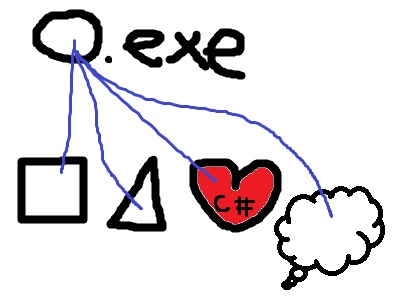 O.exe
C#